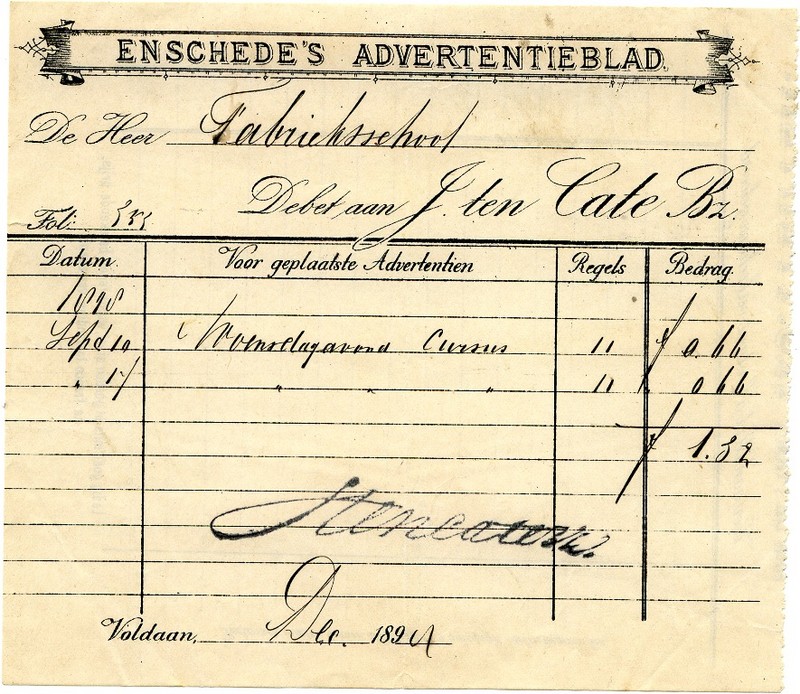 ENSCHEDE'S ADVERTENTIEBLAD.
De Heer Fabrieksschool
Debet aan J. ten Cate Bz.
Fol:
Datum. Voor geplaatste Advertentien Regels Bedrag.
1898
Sept 10 Woensdagavond Cursus 11 f 0.66
" 17 " " " 11 " 0.66
f 1.32
Jtencatebz.
Voldaan, Dec. 189